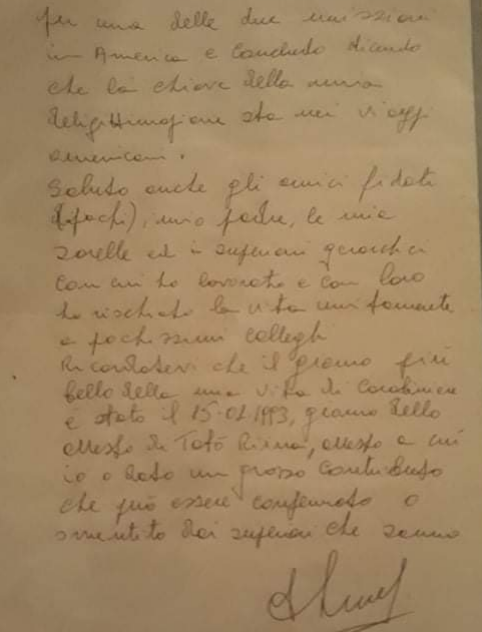 per una delle due missioni
in America e concludo dicendo
che la chiave della mia
delegittimazione sta nei viaggi
americani.
Saluto anche gli amici fidati
(pochi), mio padre, le mie
sorelle ed i superiori gerarchici
con cui ho lavorato e con loro
ho rischiato la vita unitamente
a pochissimi colleghi
Ricordatevi che il giorno più
bello della mia vita di Carabiniere
è stato il 15-01-1993, giorno dello
arresto di Totò Riina, arresto a cui
io o dato un grosso contributo
che può essere confermato o
smentito dai superiori che sanno